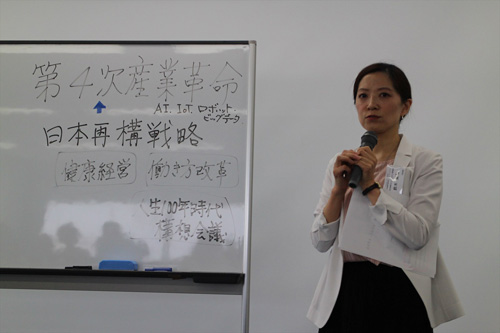 第4次産業革命
AI. IoT ロボット
ビッグデータ
日本再構戦略
健康経営 働き方改革
人生100年時代
構想会議